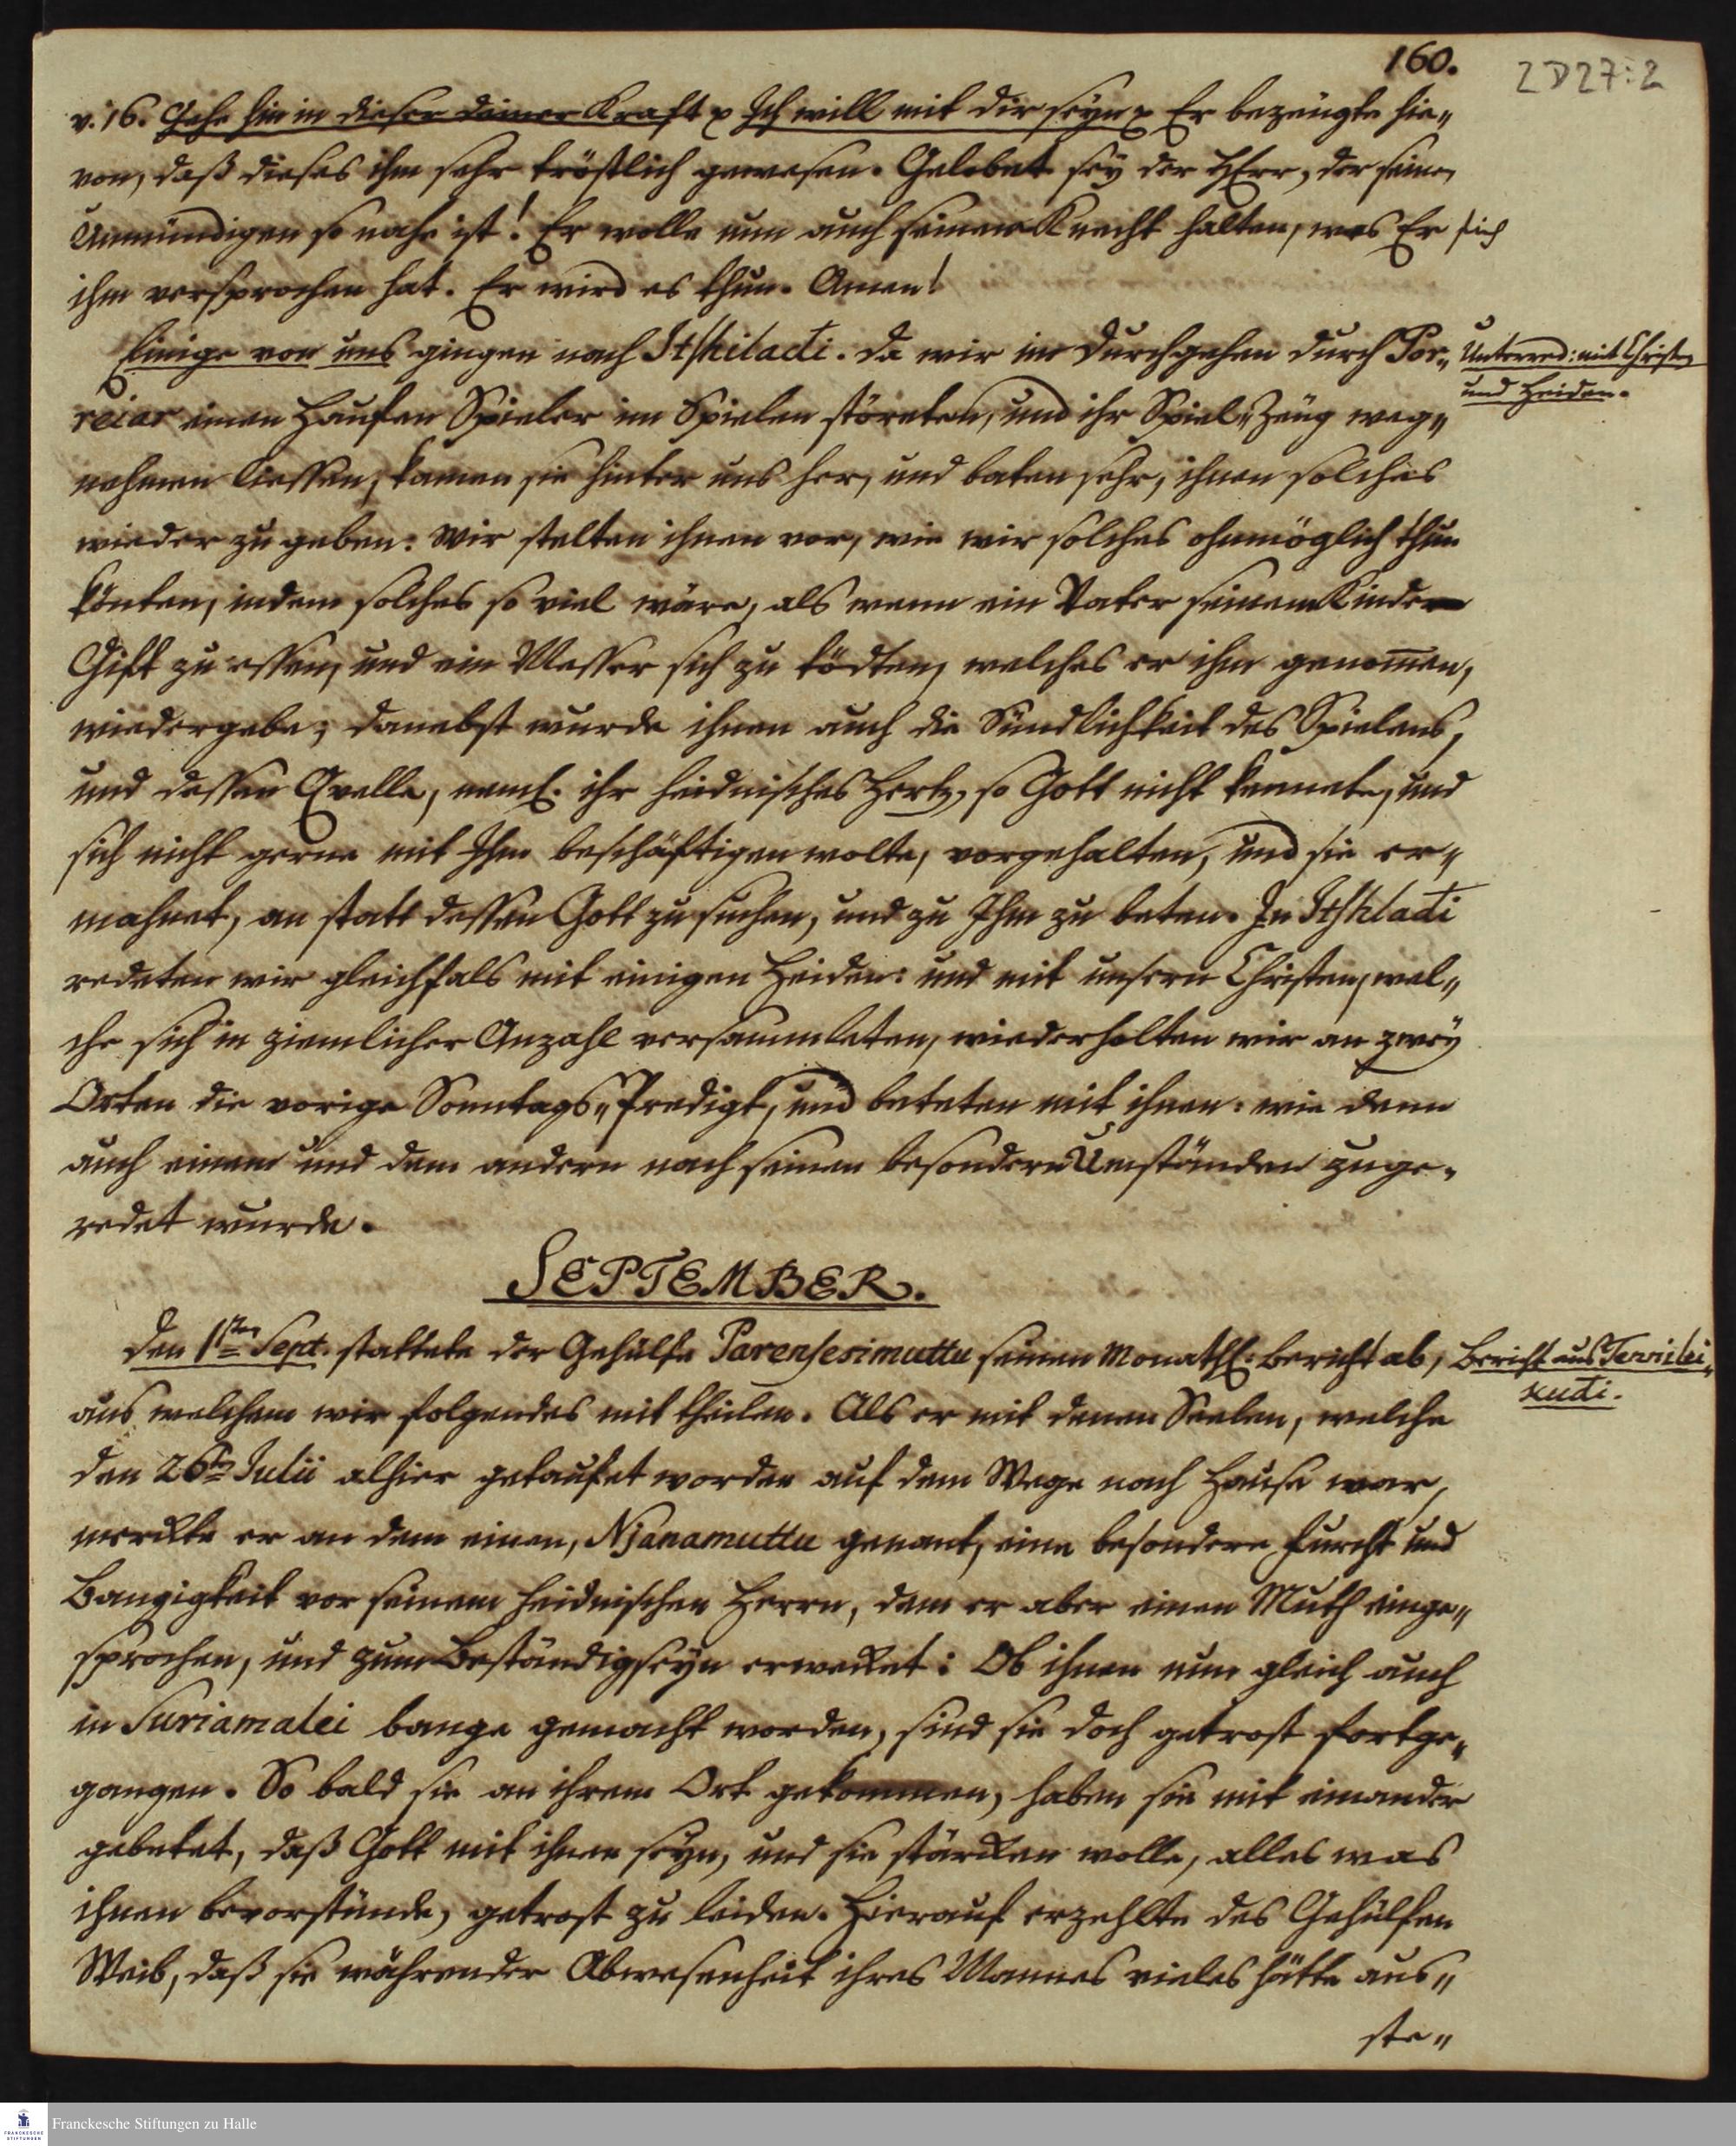 160.
2 D 27:2
v. 16. Gehe hin in dieser deiner Kraft p Ich will mit dir seyn p Er bezeugte hie„
von, daß dieses ihm sehr tröstlich gewesen. Gelobet sey der HErr, der seinen
Unmündigen so nahe ist! Er wolle nun auch seinem Knecht halten, was Er sich
ihm versprochen hat. Er wird es thun. Amen!
Einige von uns gingen nach Itshiladi. Da wir im Durchgehen durch Por„
Unterred: mit Christen
und Heiden.
reiar einen Haufen Spieler im Spielen störeten, und ihr Spiel„Zeug weg„
nehmen liessen, kamen sie hinter uns her, und baten sehr, ihnen solches
wieder zu geben: wir stelten ihnen vor, wie wir solches ohnmöglich thun
könten, indem solches so viel wäre, als wenn ein Vater seinem Kinde
Gift zu essen, und ein Messer sich zu tödten, welches er ihm genommen,
wiedergebe; danebst wurde ihnen auch die Sündlichkeit des Spielens,
und dessen Qvelle, neml. ihr heidnisches Hertz, so Gott nicht kennete, und
sich nicht gerne mit Ihm beschäftigen wolte, vorgehalten, und sie er„
mahnet, an statt dessen Gott zu suchen, und zu Ihm zu beten. In Itshladi
redeten wir gleichfals mit einigen Heiden: und mit unsern Christen, wel„
che sich in ziemlicher Anzahl versammleten, wiederholten wir an zwey
Orten die vorige Sonntags„Predigt, und beteten mit ihnen: wie denn
auch einem und dem andern nach seinen besondern Umständen zuge„
redet wurde.
SEPTEMBER.
Den 1sten Sept. stattete der Gehülfe Parensesimuttu seinen Monathl. Bericht ab,
Bericht aus Tennilei„
kudi.
aus welchem wir folgendes mit theilen. Als er mit denen Seelen, welche
den 26ten Julii alhier getaufet worden auf dem Wege nach Hause war,
merckte er an dem einen, Njanamuttu genant, eine besondere Furcht und
Bangigkeit vor seinem heidnischen Herrn, dem er aber einen Muth einge„
sprochen, und zum Beständigseyn erwecket: Ob ihnen nun gleich auch
in Suriamalei bange gemacht worden, sind sie doch getrost fortge„
gangen. So bald sie an ihrem Ort gekommen, haben sie mit einander
gebetet, daß Gott mit ihnen seyn, und sie stärcken wolle, alles was
ihnen bevorstünde, getrost zu leiden. Hierauf erzehlte des Gehülfen
Weib, daß sie währender Abwesenheit ihres Mannes vieles hätte aus„
ste„
FRANCKESCHE
STIFTUNGEN
Franckesche Stiftungen zu Halle